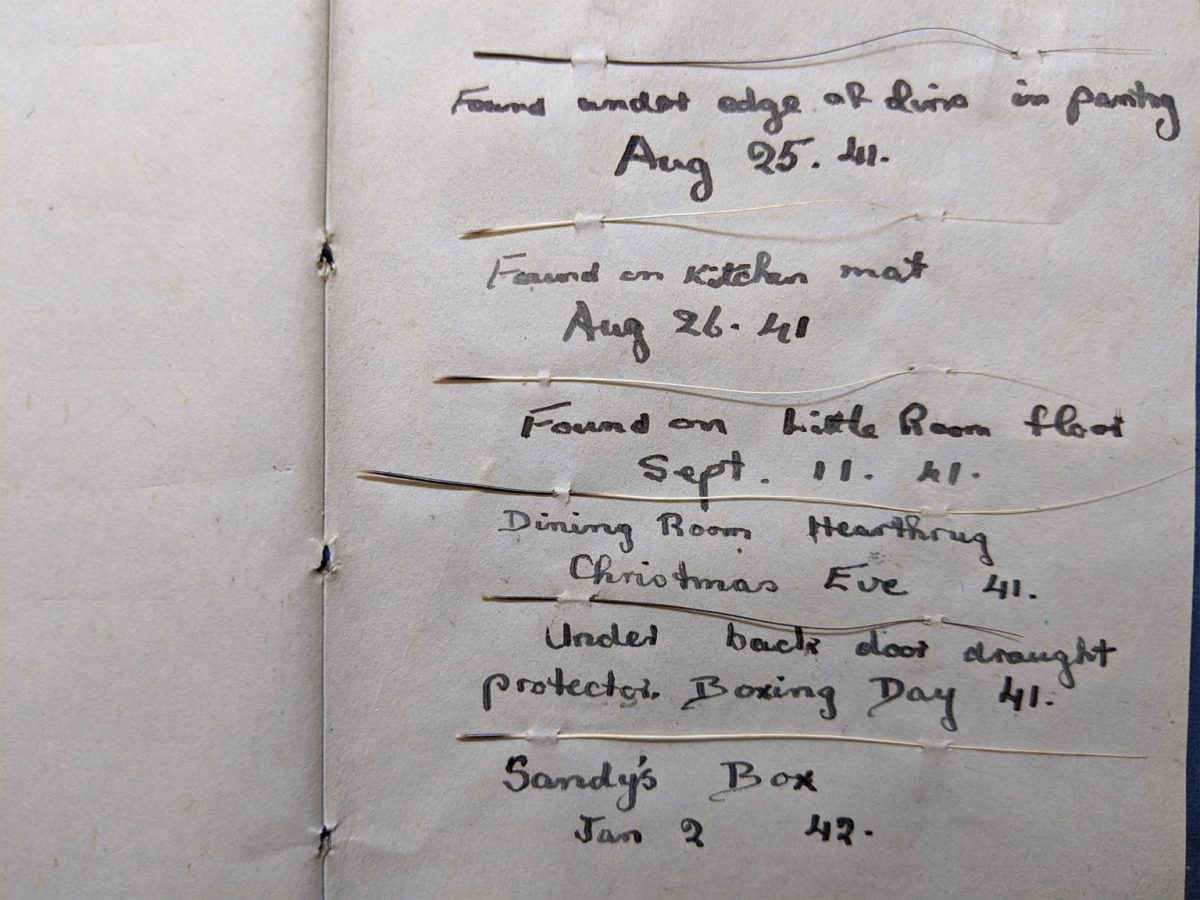 Found under edge of lino in pantry
Aug 25. 41.
Found on Kitchen mat
Aug 26. 41
Found on Little Room floor
Sept. 11. 41.
Dining Room Hearthrug
Christmas Eve 41.
Under back door draught
protector. Boxing Day 41.
Sandy's Box
Jan 2 42.